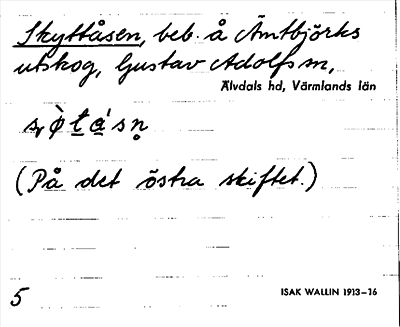 Skyttåsen, beb. å Ämtbjörks
utskog, Gustav Adolfs sn,
Älvdals hd, Värmlands län
(På det östra skiftet.)
5 ISAK WALLIN 1913–16